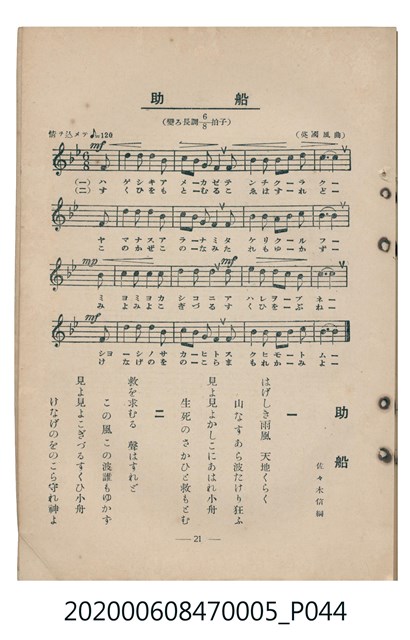 助船
(變ろ長調 6/8 拍子)
情ヲ込メテ ♪=120
(英國風曲)
mf
(一) ハゲシキアメーカゼテンチクーラクー
(二) すくひをもとーむるこゑはすーれどー
ヤマナスアラーナミタケリクールフー
このかぜこのーなみたれもゆーかずー
mp
mf
ミヨミヨカシコニアハレヲーブネー
みよみよこぎづるすくひをーぶねー
mf
シヨーシノサカーヒトスクヒモートムー
けなげのをのーこらまもれかーみよー
助船
佐々木信綱
一
はげしき雨風 天地くらく
山なすあら波たけり狂ふ
見よ見よかしこにあはれ小舟
生死のさかひと救もとむ
二
救を求むる 聲はすれど
この風この波誰もゆかず
見よ見よこぎづるすくひ小舟
けなげのをのこら守れ神よ
— 21 —
202000608470005_P044